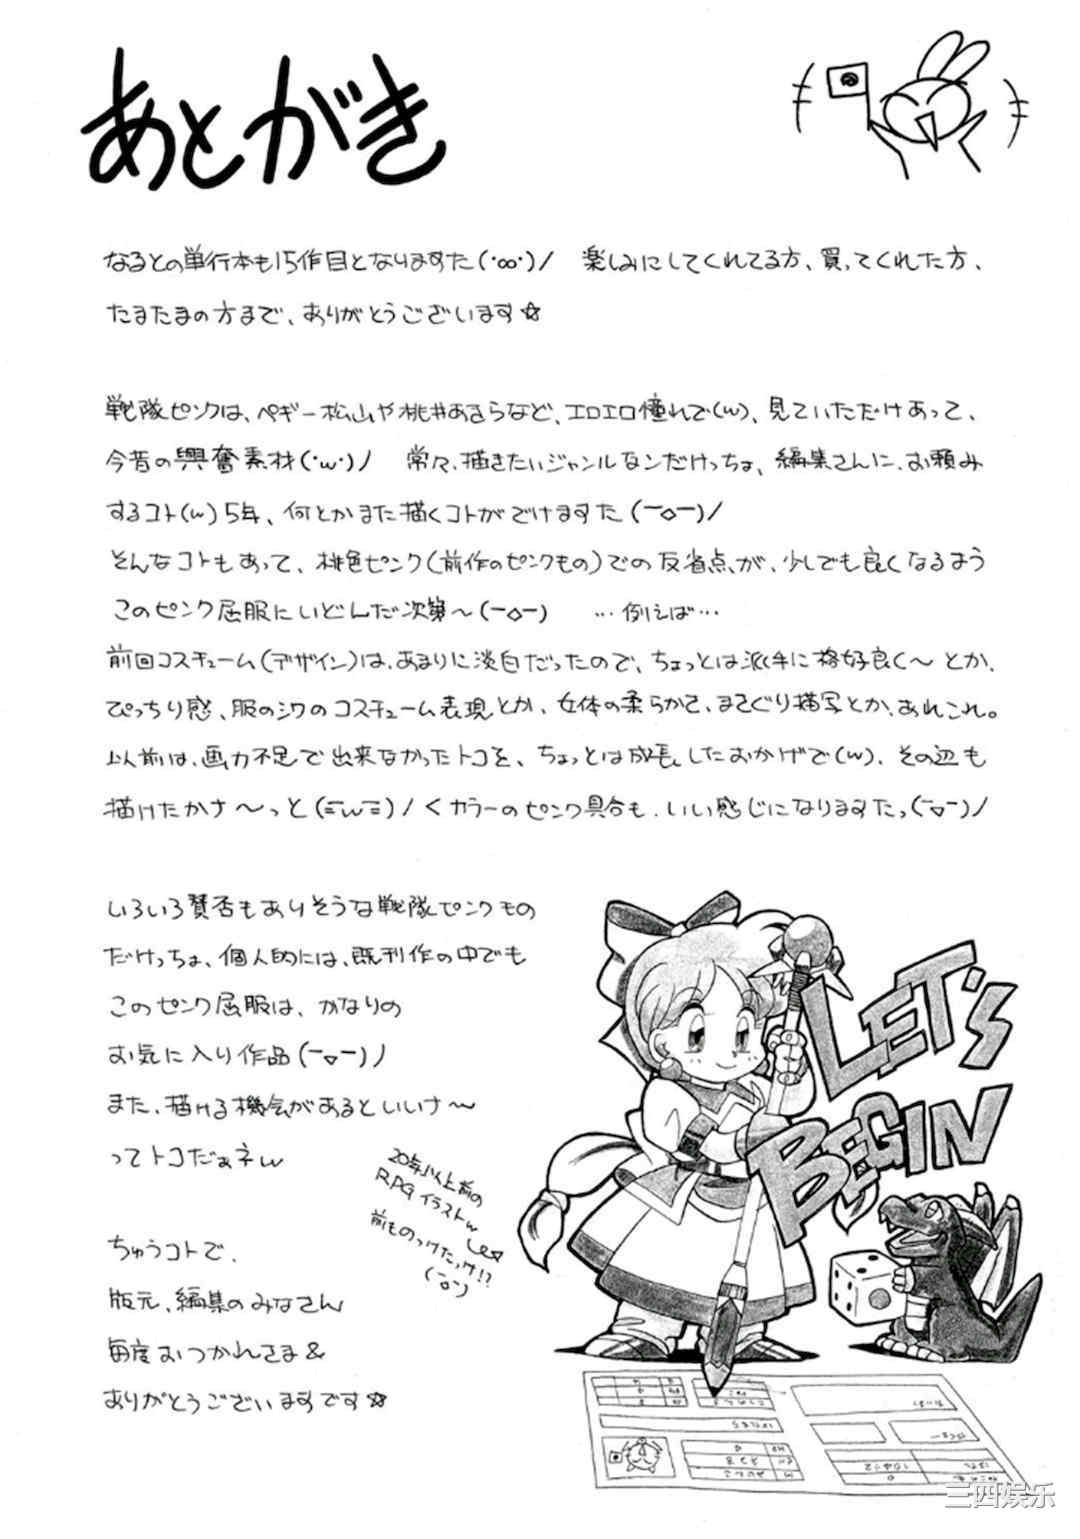 あとがき
なるとの単行本も15作目となりますた(・∞・)/　楽しみにしてくれてる方、買ってくれた方、
たまたまの方まで、ありがとうございます☆
戦隊ピンクは、ペギー松山や桃井あきらなど、エロエロ憧れで(w)、見ていただけあって、
今昔の興奮素材(・w・)ノ　常々、描きたいジャンルなンだけっちょ、編集さんに、お頼み
するコト(w)5年、何とかまた描くコトがでけますた(ー◇ー)/
そんなコトもあって、桃色ピンク(前作のピンクもの)での反省点が、少しでも良くなるよう
このピンク屈服にいどんだ次第〜(ー◇ー)　…例えば…
前回コスチューム(デザイン)は、あまりに淡白だったので、ちょっとは派手に格好良く〜とか、
ぴっちり感、服のシワのコスチューム表現とか、女体の柔らかさ、まさぐり描写とか、あれこれ。
以前は、画力不足で出来なかったトコを、ちょっとは成長したおかげで(w)、その辺も
描けたかナ〜っと(ミw三)/く カラーのピンク具合も、いい感じになりますたっ(ー▽ー)/
いろいろ賛否もありそうな戦隊ピンクもの
だけっちょ、個人的には、既刊作の中でも
このピンク屈服は、かなりの
お気に入り作品(ー▽ー)ノ
また、描ける機会があるといいナ〜
ってトコだぁネw
20年以上前の
RPGイラストw
前ものっけたっけ!?
(ー◇ー)
ちゅうコトで、
版元、編集のみなさん
毎度おつかれさま&
ありがとうございますです☆
LET'S
BEGIN
三四娱乐